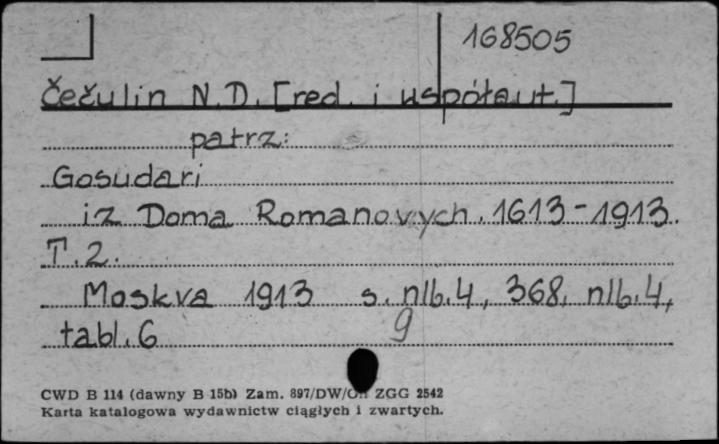 168505
Čečulin N.D. [red. i współaut.]
patrz:
Gosudari
iz Doma Romanovych. 1613-1913.
T.2.
Moskva 1913 s. nlb.4, 368, nlb.4,
tabl.6 9
CWD B 114 (dawny B 15b) Zam. 897/DW/On ZGG 2542
Karta katalogowa wydawnictw ciągłych i zwartych.